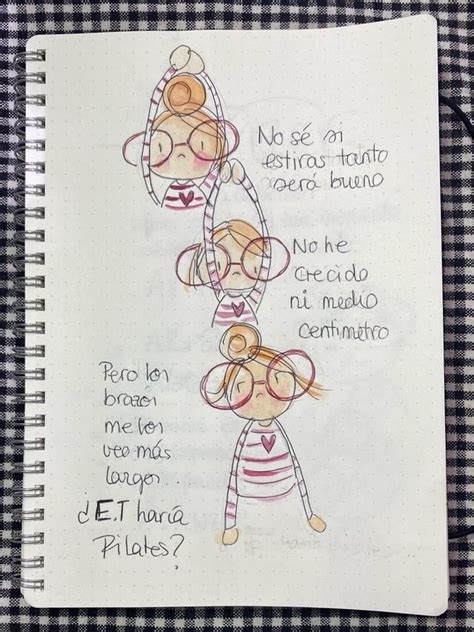 No sé si
estiras tanto
será bueno
No he
crecido
ni medio
centímetro
Pero los
brazos
me los
veo más
largos...
¿E.T haría
Pilates?